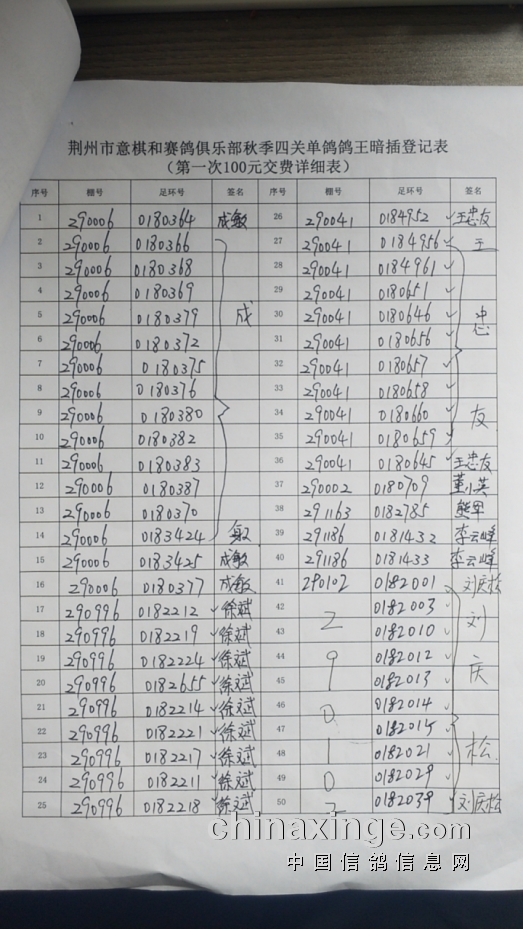 荆州市意棋和赛鸽俱乐部秋季四关单鸽鸽王暗插登记表
（第一次100元交费详细表）
序号 棚号 足环号 签名 序号 棚号 足环号 签名
1 290006 0180364 成敏 26 290041 0184952 王忠友
2 290006 0180366 27 290041 0184956 王
3 290006 0180368 28 290041 0184961
4 290006 0180369 29 290041 0180651
5 290006 0180379 成 30 290041 0180646 忠
6 290006 0180372 31 290041 0180656
7 290006 0180375 32 290041 0180657
8 290006 0180376 33 290041 0180658
9 290006 0180380 34 290041 0180660 友
10 290006 0180382 35 290041 0180659
11 290006 0180383 36 290041 0180645 王忠友
12 290006 0180387 37 290002 0180709 董小英
13 290006 0180370 38 291163 0182785 熊军
14 290006 0183424 敏 39 291186 0181432 李云峰
15 290006 0183425 成敏 40 291186 0181433 李云峰
16 290006 0180377 成敏 41 290102 0182001 刘庆松
17 290996 0182212 徐斌 42 0182003
18 290996 0182219 徐斌 43 2 0182010 刘
19 290996 0182224 徐斌 44 0182012
20 290996 0182655 徐斌 45 9 0182013 庆
21 290996 0182214 徐斌 46 0182014
22 290996 0182221 徐斌 47 0 0182015
23 290996 0182217 徐斌 48 1 0182021 松
24 290996 0182211 徐斌 49 0 0182029
25 290996 0182218 徐斌 50 2 0182039 刘庆松
chinaxinge.com
中国信鸽信息网